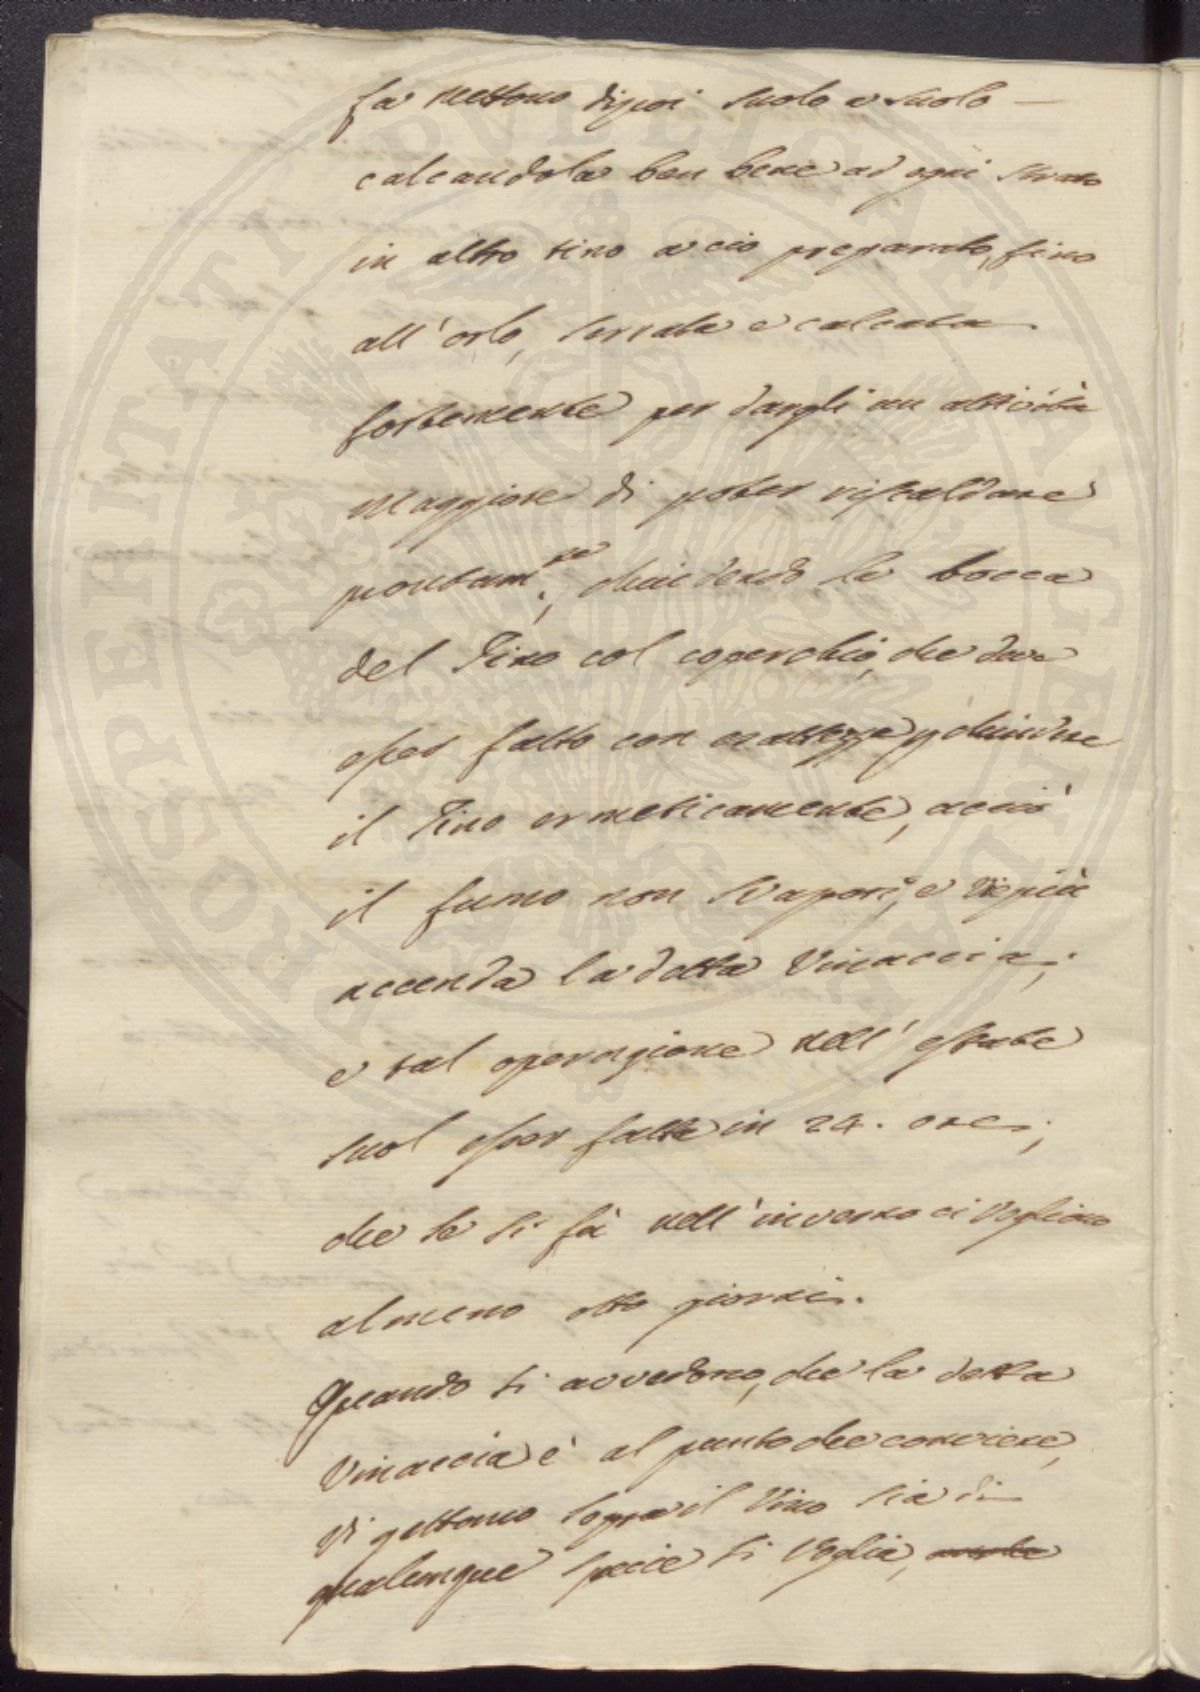 la mettono dipoi suolo a suolo —
calcandola ben bene ad ogni strato
in altro tino a ciò preparato, fino
all' orlo, serrata e calcata
fortemente per dargli un attività
maggiore di poter riscaldare
prontam.te, chiudendo la bocca
del Tino col coperchio, che deve
esser fatto con esattezza p chiudere
il Tino ermeticamente, acciò
il fumo non svapori, e vie più
accenda la detta Vinaccia;
e tal operazione nell' estate
suol esser fatta in 24. ore;
che se si fà nell' inverno ci vogliono
almeno otto giorni.
Quando si avvedono, che la detta
Vinaccia è al punto che conviene,
vi gettono sopra il Vino sia di
qualunque specie si voglia,
PROSPERITATI PVBLICAE AVGENDAE